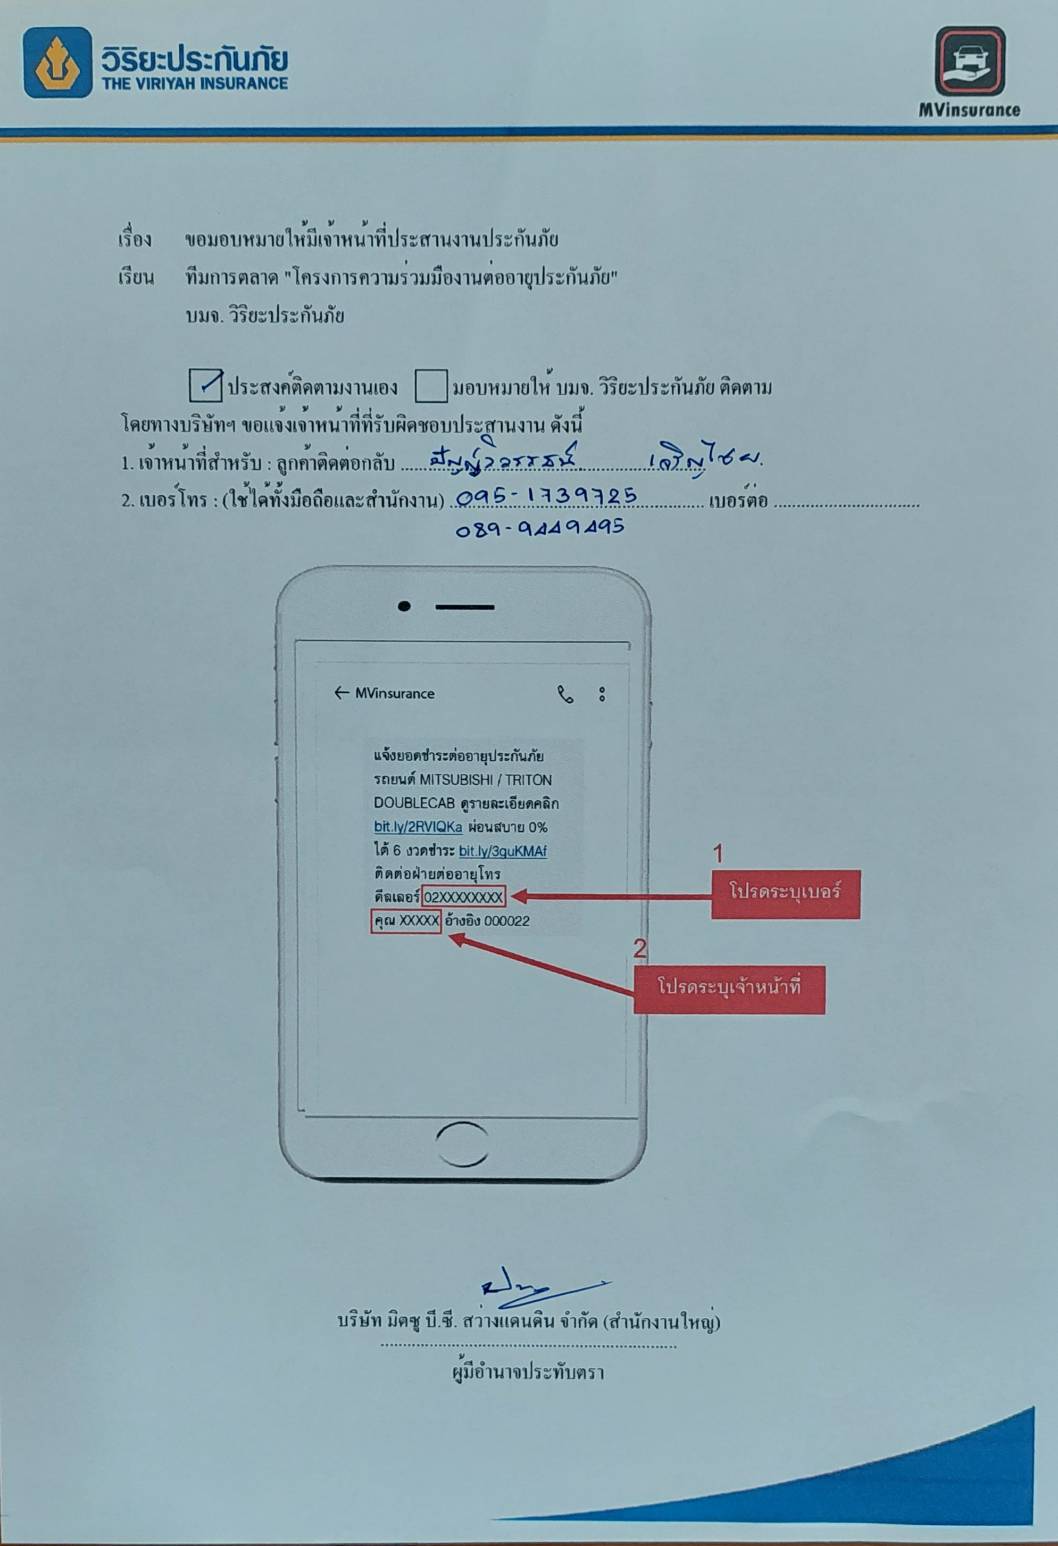 วิริยะประกันภัย
THE VIRIYAH INSURANCE
MVinsurance
เรื่อง ขอมอบหมายให้มีเจ้าหน้าที่ประสานงานประกันภัย
เรียน ทีมการตลาด "โครงการความร่วมมืองานต่ออายุประกันภัย"
บมจ. วิริยะประกันภัย
ประสงค์ติดตามงานเอง มอบหมายให้ บมจ. วิริยะประกันภัย ติดตาม
โดยทางบริษัทฯ ขอแจ้งเจ้าหน้าที่ที่รับผิดชอบประสานงาน ดังนี้
1. เจ้าหน้าที่สำหรับ : ลูกค้าติดต่อกลับ เจริญไชย
2. เบอร์โทร : (ใช้ได้ทั้งมือถือและสำนักงาน) 095-1739725 เบอร์ต่อ
089-9449495
← MVinsurance
แจ้งยอดชำระต่ออายุประกันภัย
รถยนต์ MITSUBISHI / TRITON
DOUBLECAB ดูรายละเอียดคลิก
bit.ly/2RVIQKa ผ่อนสบาย 0%
ได้ 6 งวดชำระ bit.ly/3guKMAf
ติดต่อฝ่ายต่ออายุโทร
ดีลเลอร์ 02XXXXXXXX
คุณ XXXXX อ้างอิง 000022
1
โปรดระบุเบอร์
2
โปรดระบุเจ้าหน้าที่
บริษัท มิตซู บี.ซี. สว่างแดนดิน จำกัด (สำนักงานใหญ่)
ผู้มีอำนาจประทับตรา